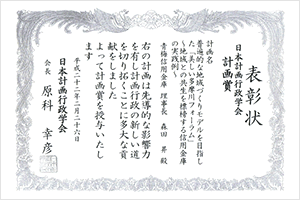 表彰状
日本計画行政学会
計画賞
計画名
普遍的な地域づくりモデルを目指し
た「美しい多摩川フォーラム」
～地域との共生を標榜する信用金庫
の実践例～
青梅信用金庫 理事長 森田 昇 殿
右の計画は先導的な影響力
を有し計画行政の新しい道
を切り拓くことに多大な貢
献をしました
よって計画賞を授与いたし
ます
平成二十二年二月二十六日
日本計画行政学会
会長 原科 幸彦